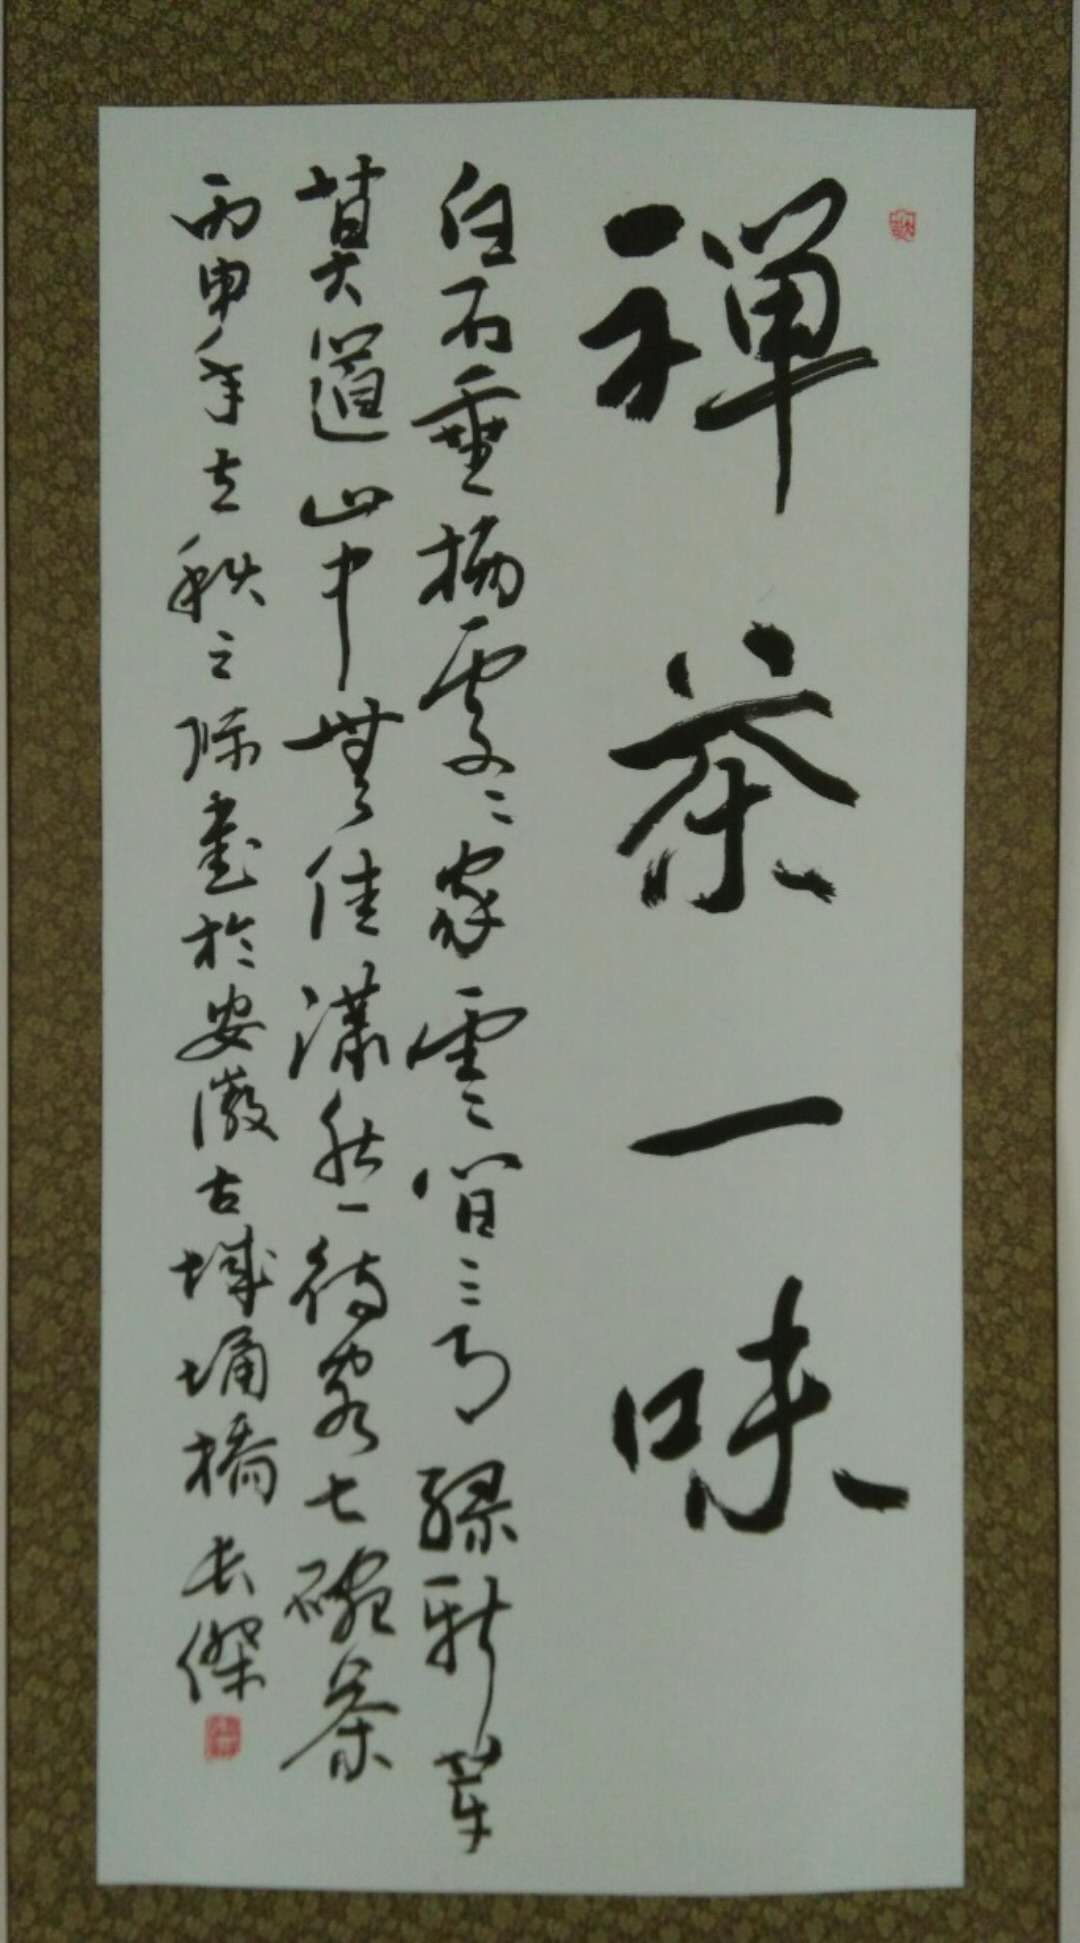 禪茶一味
白石垂楊處〻家雲間三月綠新芽
莫道山中無佳瀟然一待客七碗茶
丙申年立秋之際書於安徽古城埇橋長傑